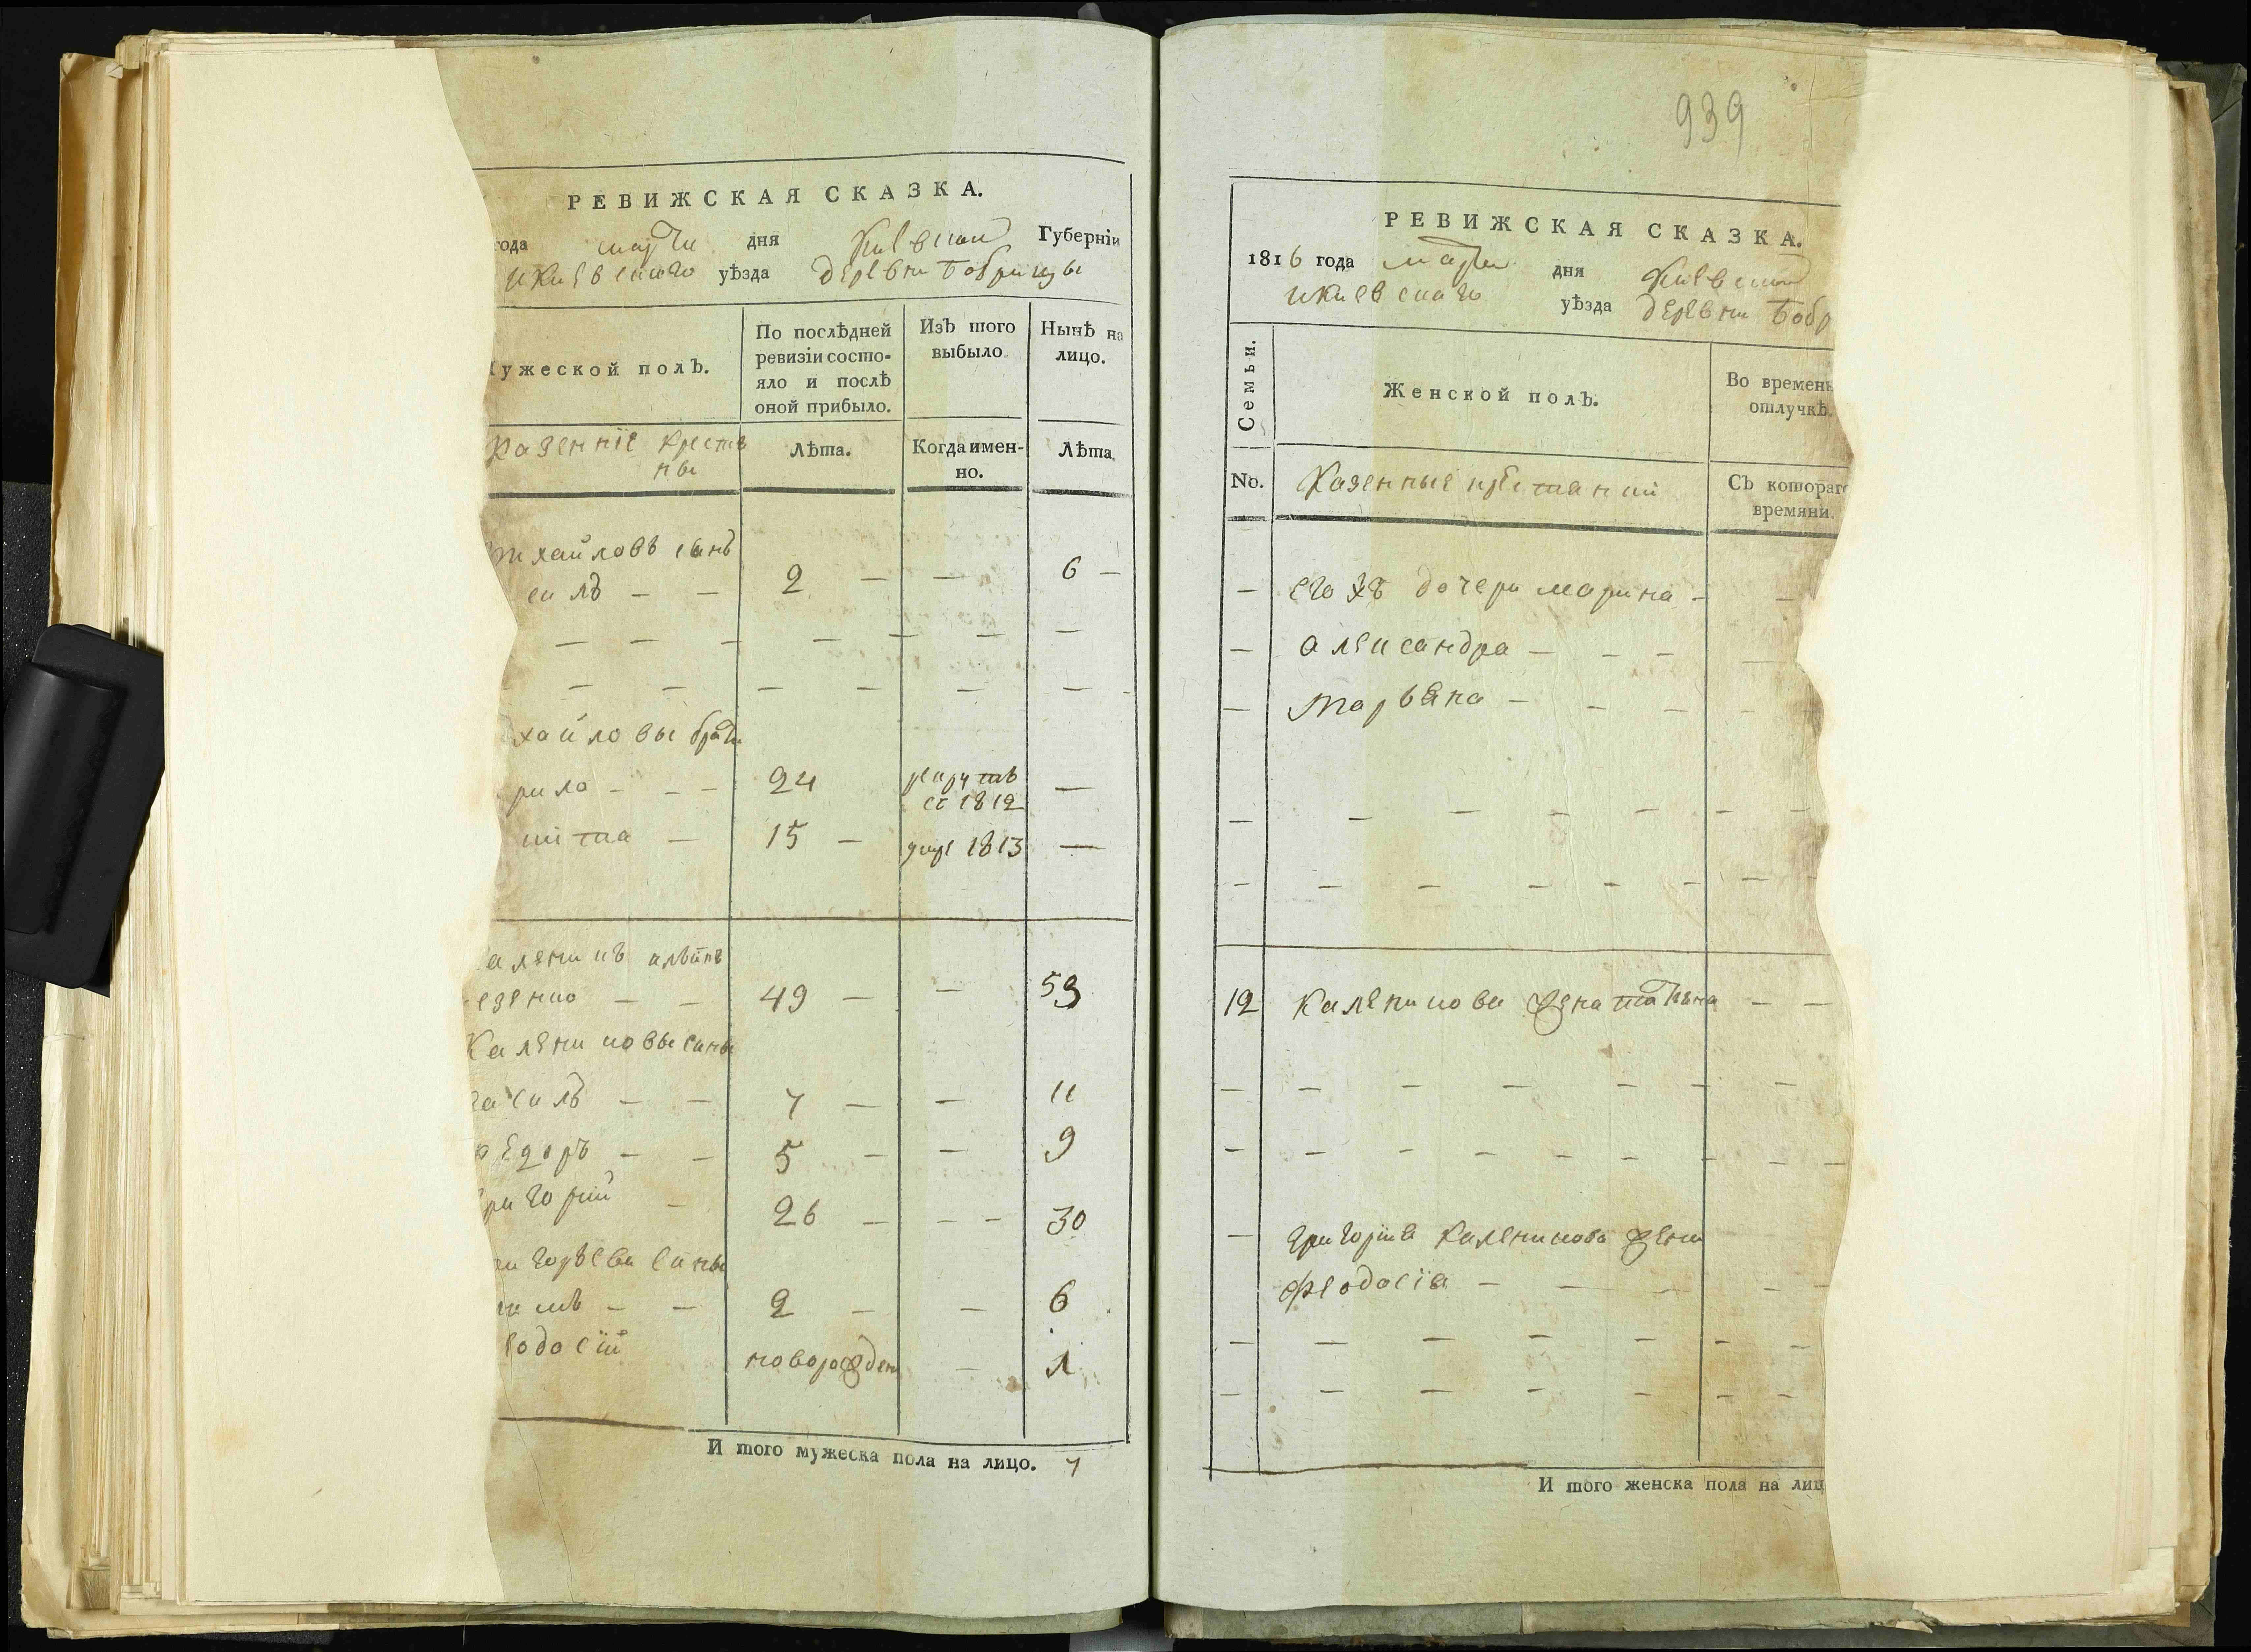 РЕВИЖСКАЯ СКАЗКА.
года марта дня Киевской Губернiи
Киевскаго уѣзда деревни Бобрицы
Мужеской полъ.
По послѣдней ревизiи состо-
яло и послѣ
оной прибыло.
Изъ того
выбыло
Нынѣ на
лицо.
Казеннiе крестя
ны
Лѣта.
Когда имен-
но.
Лѣта.
михайловъ сынъ
силъ - - 2 - - 6 -
хайловы брати
рило - - - 24 рекрутъ
св 1812 —
кита — 15 - умре 1813 —
аленикъ
езенко - - 49 - - 53
Калениковы сины
7 - - 11
федоръ - - 5 - - 9
ригорий - 26 - - - 30
григорьеви сины
2 - - 6
еодосiй новорожден - 1
И того мужеска пола на лицо. 7
939
РЕВИЖСКАЯ СКАЗКА.
1816 года марта дня Киевской
Киевскаго уѣзда деревни Бобр
Семьи.
Женской полъ.
Во времянн
отлучкѣ.
No.
Казенные крестянки
Съ котораго
времяни.
- его дочери марина -
- александра - - -
- марьяна - - -
12 Каленикова жена татияна - -
- григория Каленикова жена
феодосiя -
И того женска пола на лиц